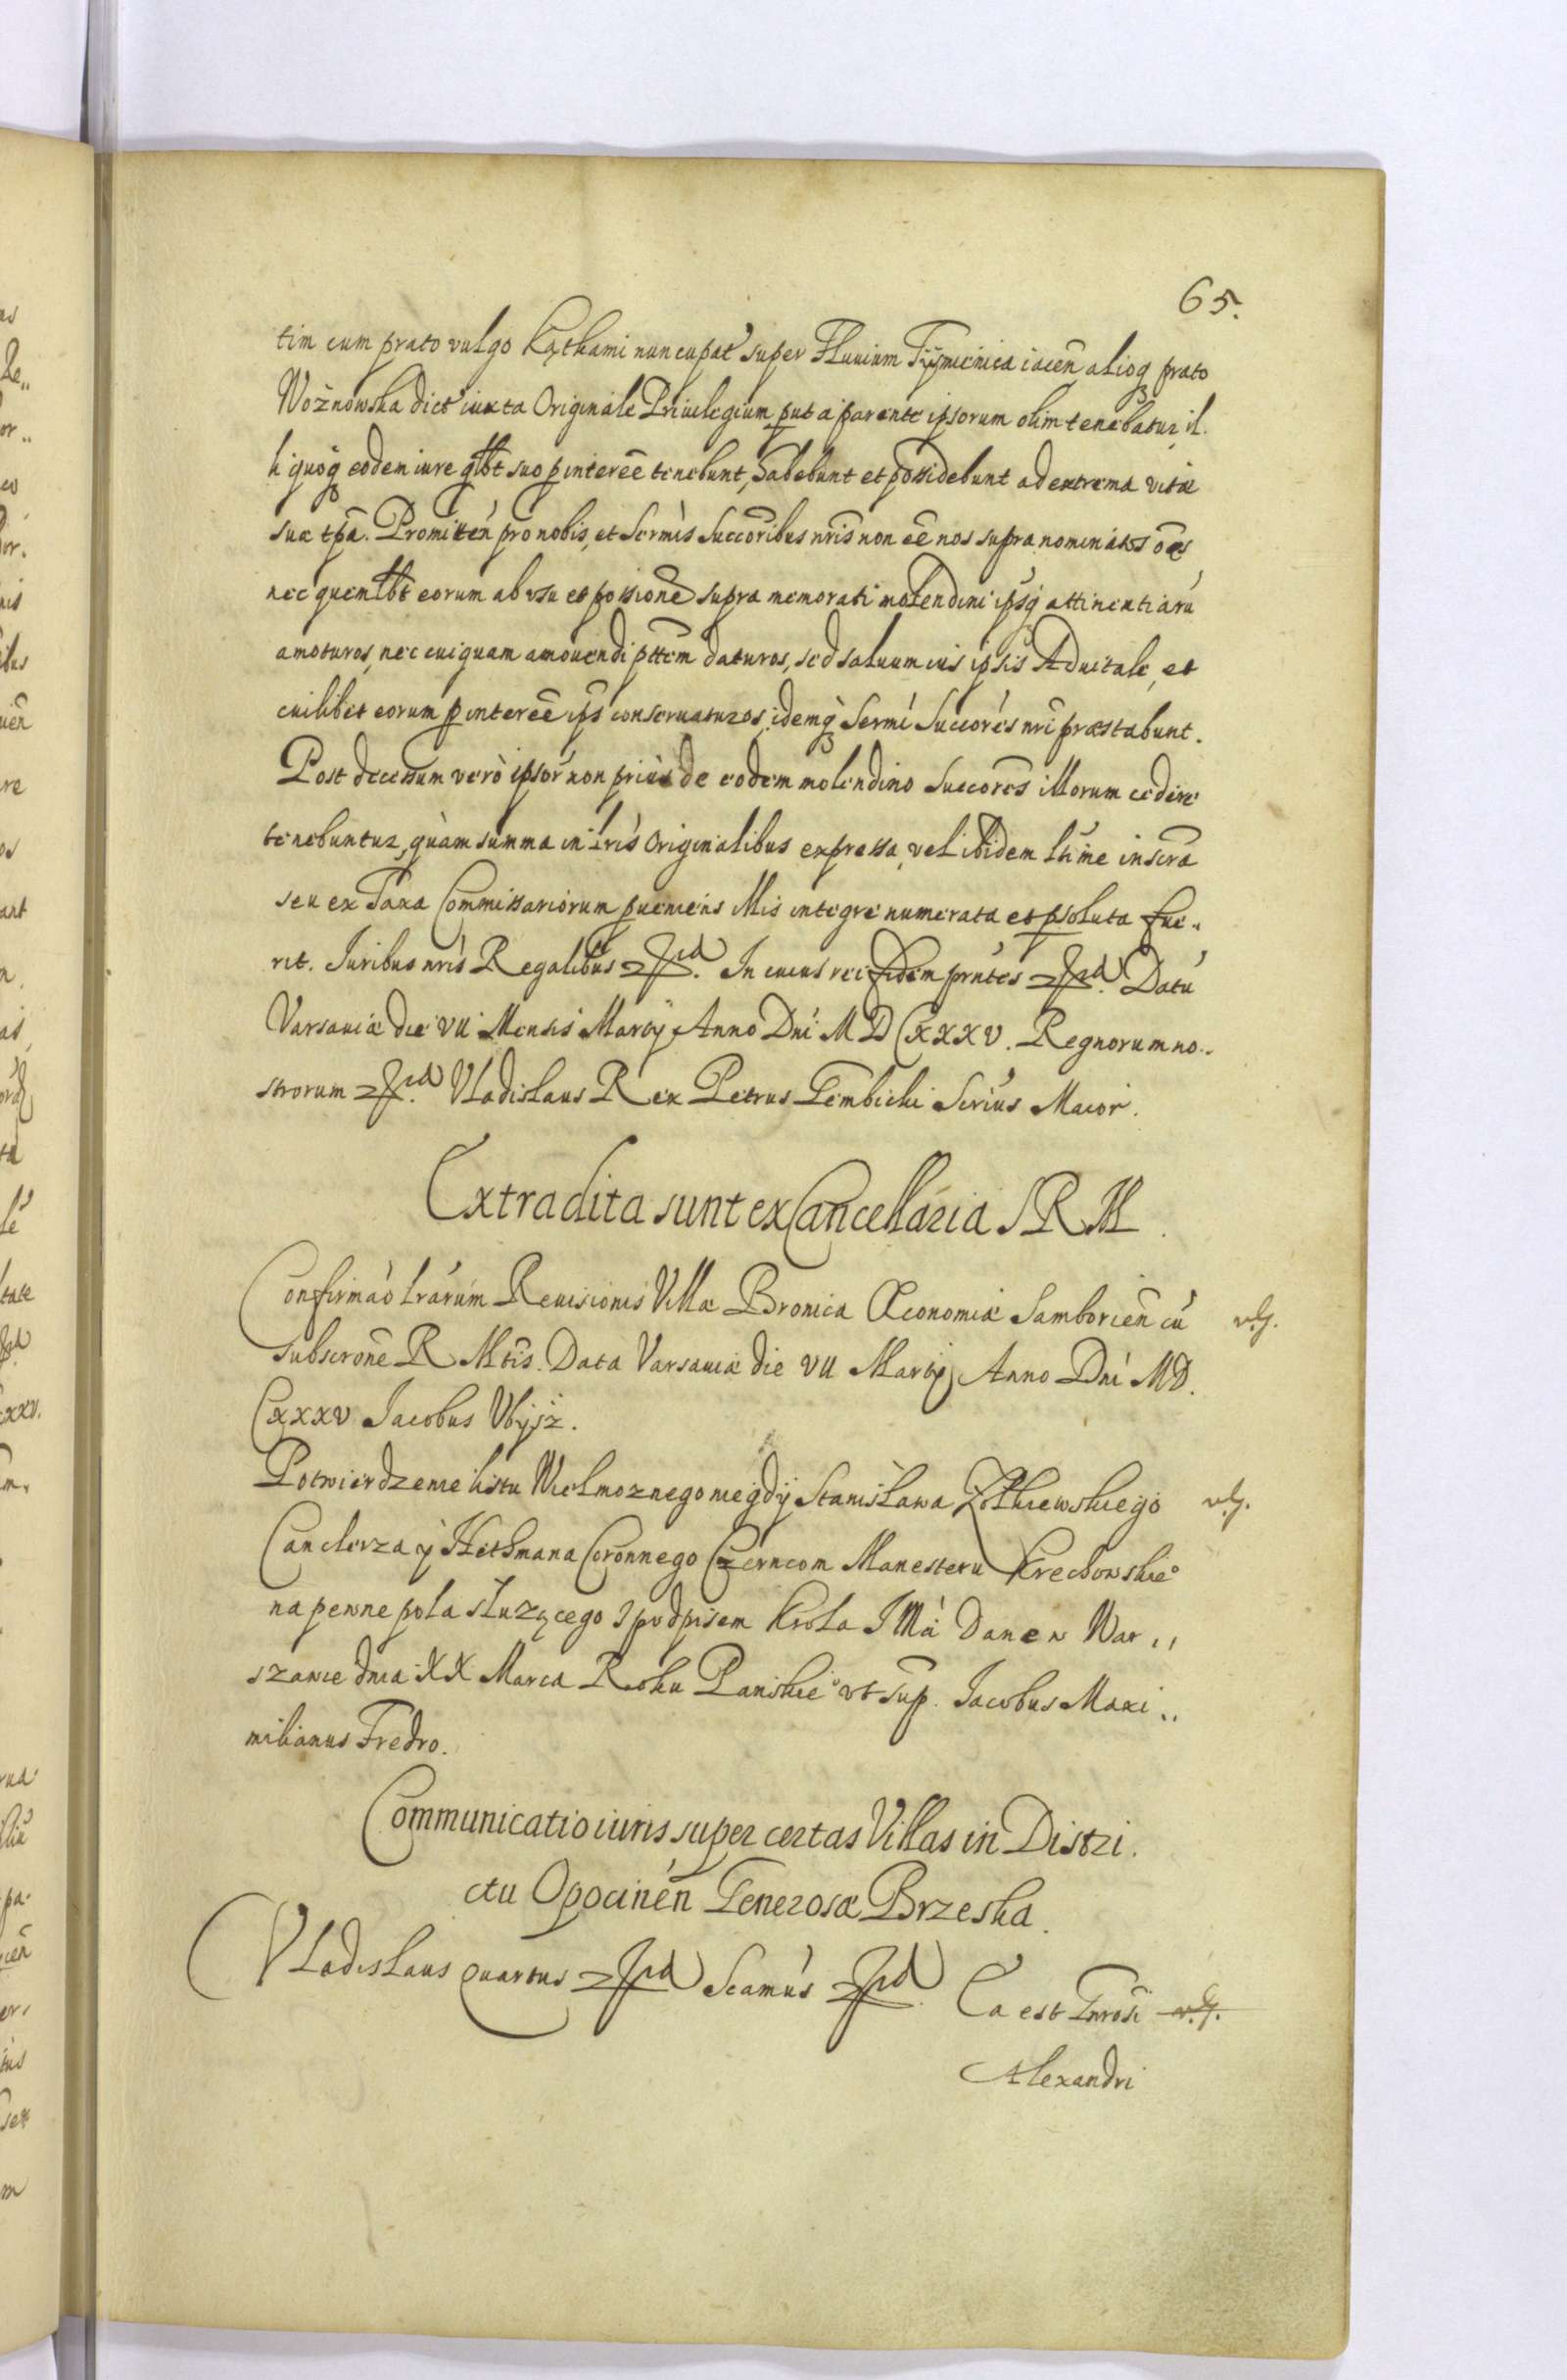 65.
tim cum prato vulgo Kąthami nuncupat̃ super Fluuium Tyśmienica iaceñ alioq; prato
Woźnowska dict̃ iuxta Originale Priuilegium put a parente ipsorum olim tenebatur, il.
li quoq; eodem iure qlbt suo p interẽe tenebunt, habebunt et possidebunt ad extrema vitæ
suæ tp̃a. Promitteń pro nobis, et Sermìs Succõribus nr̃is non ẽe nos supra nominatos oẽs
nec quemlbt eorum ab vsu et possionẽ supra memorati molendini ipsq; attinentiarũ
amoturos, nec cuiquam amouendi pttẽm daturos, sed saluum ius ipsis Aduitale, et
cuilibet eorum p interẽe ips̃ conseruaturos, idemq; Sermí Succorés nr̃i præstabunt.
Post decessum verò ipsor̃ non priùs de eodem molendino Succorẽs illorum cedere
tenebuntur, quàm summa in lr̃is Originalibus expressa, vel ibidem ltĩme inscr̃a
seu ex Taxa Commissariorum pueniens illis integre numerata et psoluta fue..
rit. Iuribus nr̃is Regalibus In cuius rei fidem pr̃ntes Datũ
Varsauiæ die VII Mensis Martij Anno Dñi MDCXXXV. Regnorum no..
strorum Vladislaus Rex Petrus Gembicki Scriũs Maior.
Extradita sunt ex Cancellaria SRM.
Confirmaõ lr̃arum Reuisionis Villæ Bronica Œconomiæ Samborieñ cũ
subscronẽ R Mtis. Data Varsauiæ die VII Martij Anno Dñi MD.
CXXXV Jacobus Vbysz.
Potwierdzenie listu Wielmoznego niegdÿ Stanisława Zołkiewskiego
Canclerza ÿ Hethmana Coronnego Czerncom Manesteru Krechowskie°
na pewne pola służącego z podpisem Krola JMci Dan w War..
szawie dnia XX Marca Roku Panskie° vt sup. Jacobus Maxi..
milianus Fredro.
Communicatio iuris super certas Villas in Distri.
ctu Opocineń Generosæ Brzeska.
Vladislaus Quartus Scamús Ea est Gnrosi
Alexandri